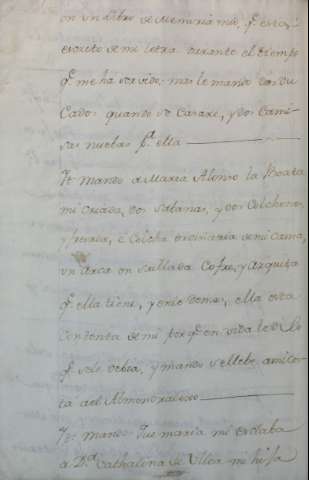 en un Libro de Memoria mio, q.e esta,
escrito de mi letra durante el tiempo
q.e me há servido: mas le mando dos Du
cados quando se casare, y dos Cami
sas nuebas p.a ella
Yt. mando a Maria Alonso la Beata
mi criada, dos savanas, y dos Colchones,
y fresada, é Colcha ordinaria de mi cama,
un Arca en Cofre, y Arquita
q.e ella tiene, y ella esta
contenta de mi porq.e en vida le dí lo
q.e se le debia, y mando se lleve a mi co
ta del Almendralejo
Yt. mando Jue maria mi esclaba
a D.a Cathalina de Ulloa mi hija